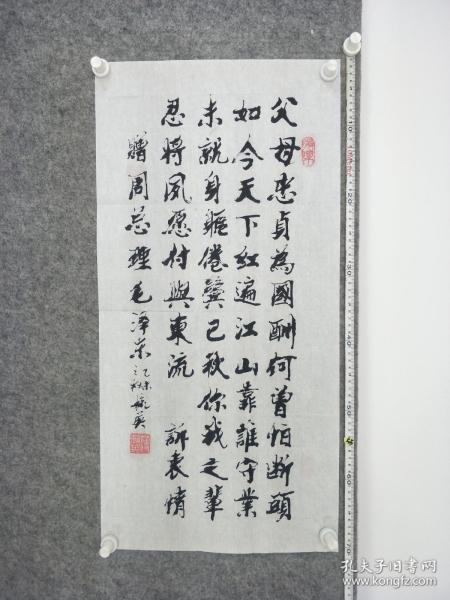 父母忠貞為國酬何曾怕断頭
如今天下红遍江山靠誰守業
未就身軀倦鬓已秋你我之輩
忍將夙愿付與東流 訴衷情
贈周总理毛泽东
孔夫子旧书网
www.kongfz.com